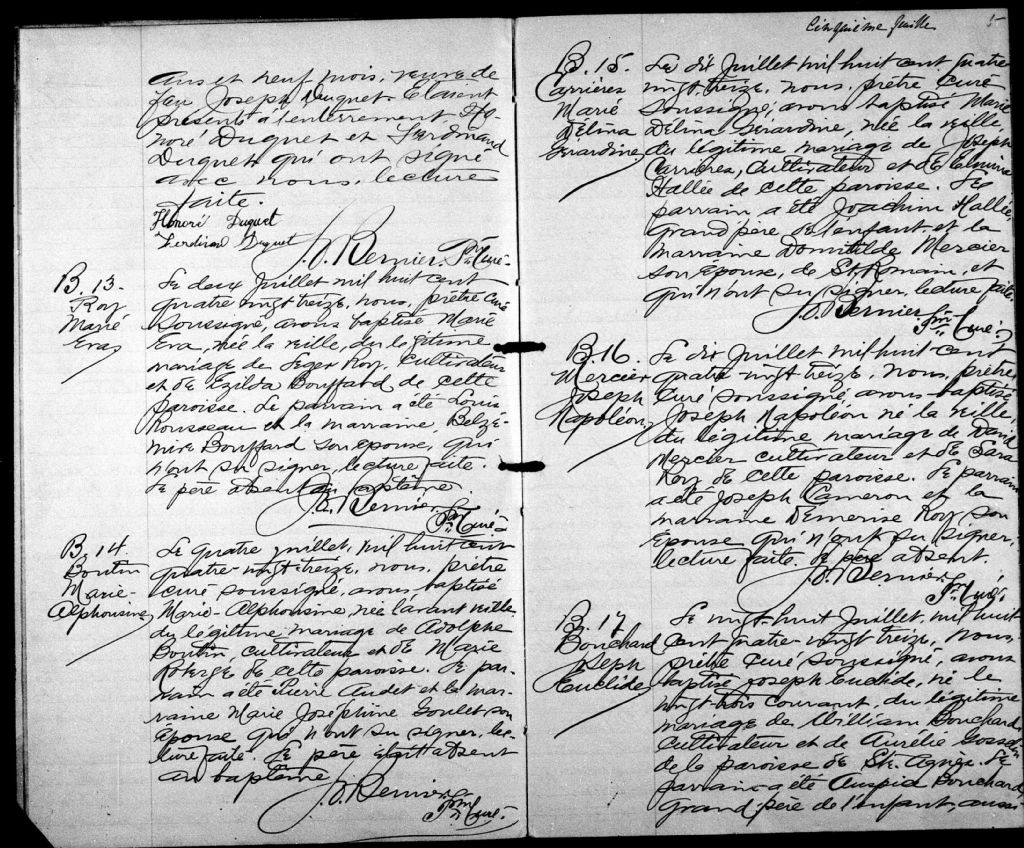 ans et neuf mois, veuve de
feu Joseph Duguet. Étaient
présents à l'enterrement Ho-
noré Duguet et Ferdinand
Duguet qui ont signé
avec nous. lecture
faite.
Honoré Duguet
Ferdinan Duguet
J. O. Bernier, Ptre Curé
B. 13.
Roy
Marie
Eva
Le deux Juillet mil huit cent
quatre vingt treize, nous, prêtre curé
soussigné, avons baptisé Marie
Eva, née la veille, du légitime
mariage de Leger Roy, cultivateur
et de Exilda Bouffard de cette
paroisse. Le parrain a été Louis
Rousseau et la marraine, Belzé-
mire Bouffard son épouse, qui
n'ont su signer, lecture faite.
Le père absent au baptême
J. O. Bernier
Ptre Curé
B. 14.
Boutin
Marie-
Alphonsine
Le quatre juillet, mil huit cent
quatre-vingt treize, nous, prêtre
curé soussigné, avons, baptisé
Marie-Alphonsine, née l'avant veille,
du légitime mariage de Adolphe
Boutin cultivateur et de Marie
Roberge de cette paroisse. Le par-
rain a été Pierre Audet et la mar-
raine Marie Joséphine Goulet son
épouse qui n'ont su signer, lec-
ture faite. Le père était absent
au baptême
J. O. Bernier
Ptre Curé
Cinquième feuille
5
B. 15.
Carrières
Marie
Délina
Gérardine
Le dix Juillet mil huit cent quatre
vingt treize, nous, prêtre curé
soussigné, avons baptisé Marie
Délina Gérardine, née la veille,
du légitime mariage de Joseph
Carrières, cultivateur et de
Hallée de cette paroisse. Le
parrain a été Joachim Hallée,
Grand père de l'enfant et la
marraine Domitilde Mercier
son épouse, de St. Romain, et
qui n'ont su signer, lecture faite.
J. O. Bernier
Ptre Curé
B. 16.
Mercier
Joseph
Napoléon
Le dix Juillet mil huit cent
quatre vingt treize, nous, prêtre
curé soussigné, avons baptisé
Joseph Napoléon né la veille,
du légitime mariage de David
Mercier cultivateur et de Sara
Roy de cette paroisse. Le parrain
a été Joseph Cameron et la
marraine Demerise Roy son
épouse qui n'ont su signer,
lecture faite. le père absent.
J. O. Bernier
Ptre Curé
B. 17
Bouchard
Joseph
Euclide
Le vingt-huit Juillet, mil huit
cent quatre vingt treize, nous,
prêtre curé soussigné, avons
baptisé Joseph Euclide, né le
vingt trois courant, du légitime
mariage de William Bouchard,
cultivateur et de Aurélie
de la paroisse de Ste. Agnès. Le
parrain a été Bouchard,
grand père de l'enfant, aussi